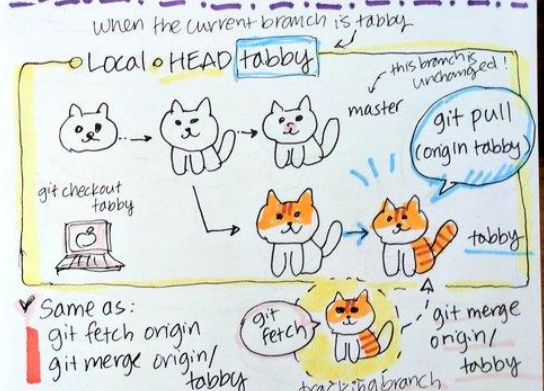 when the current branch is tabby
Local HEAD tabby
this branch is
unchanged!
master
git pull
(origin tabby)
git checkout
tabby
tabby
Same as:
git fetch origin
git merge origin/
tabby
git
fetch
git merge
origin/
tabby
tracking branch